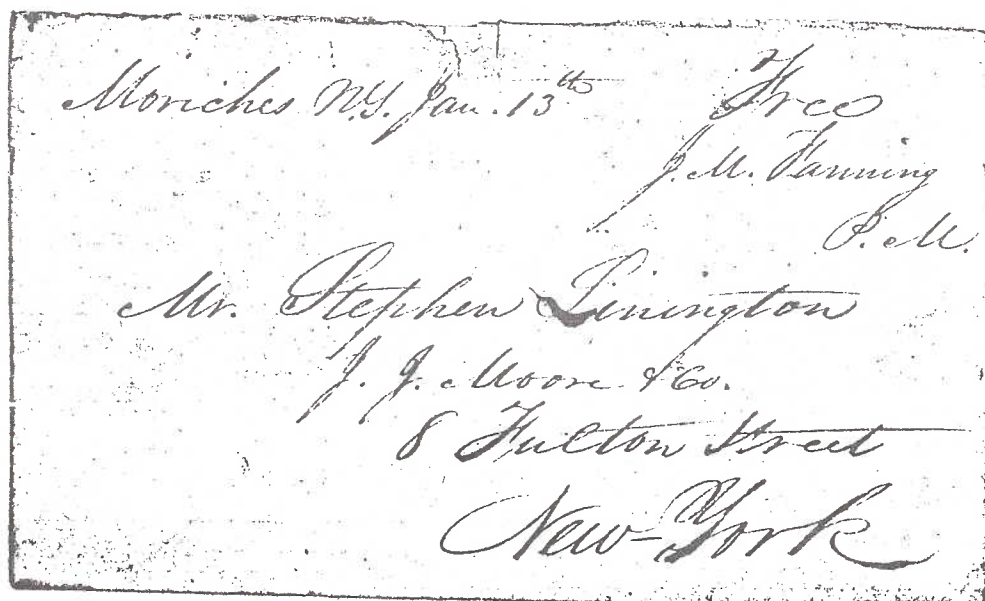 Moriches N.Y. Jan. 13th Free
J. M. Fanning
P. M.
Mr. Stephen Linington
J. J. Moore & Co.
8 Fulton Street
New-York